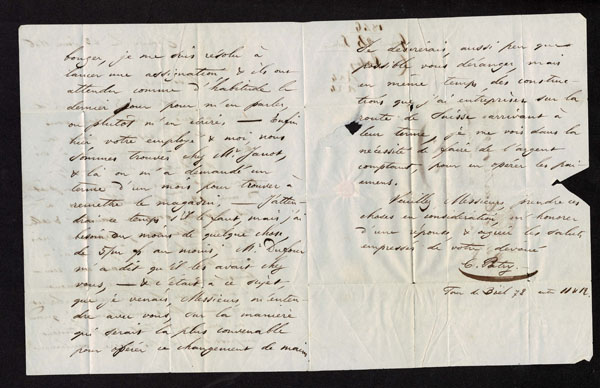 bouger, je me suis résolu à
lancer une assignation & ils ont
attendu comme d'habitude le
dernier jour pour m'en parler,
ou plutôt m'en écrire — Enfin
hier votre employé & moi nous
sommes trouvés chez Mr
& là on m'a demandé un
terme d'un mois pour trouver à
remettre le magasin, — J'atten-
drai ce temps s'il le faut, mais j'ai
besoin au moins de quelque chose,
de au moins, Mr Dufour
m'a dit qu'il les avait chez
vous, — & c'était à ce sujet,
que je venais, Messieurs, m'enten-
dre avec vous, sur la manière
qui serait la plus convenable
pour opérer ce changement de main
Je désirerais, aussi peu que
possible vous déranger, mais
en même temps, des construc-
tions que j'ai entreprises sur la
route de Suisse arrivant à
leur terme, je me vois dans la
nécessité de faire de l'argent
comptant, pour en opérer les pai-
emens.
Veuillez Messieurs, prendre ces
choses en considération, m'honorer
d'une réponse & agréer les saluts
empressés de votre dévoué
Tour de 78